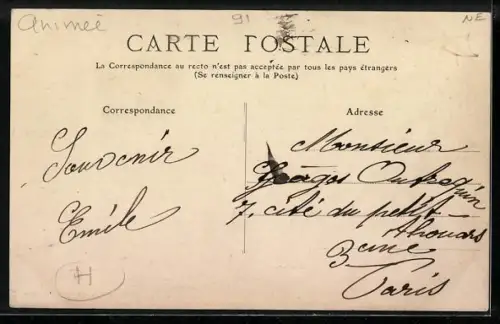 animée
91
NE
CARTE POSTALE
La Correspondance au recto n'est pas acceptée par tous les pays étrangers
(Se renseigner à la Poste)
Correspondance
Adresse
Souvenir
Emile
H
Monsieur
7, cité du petit
Thouars
3eme
Paris